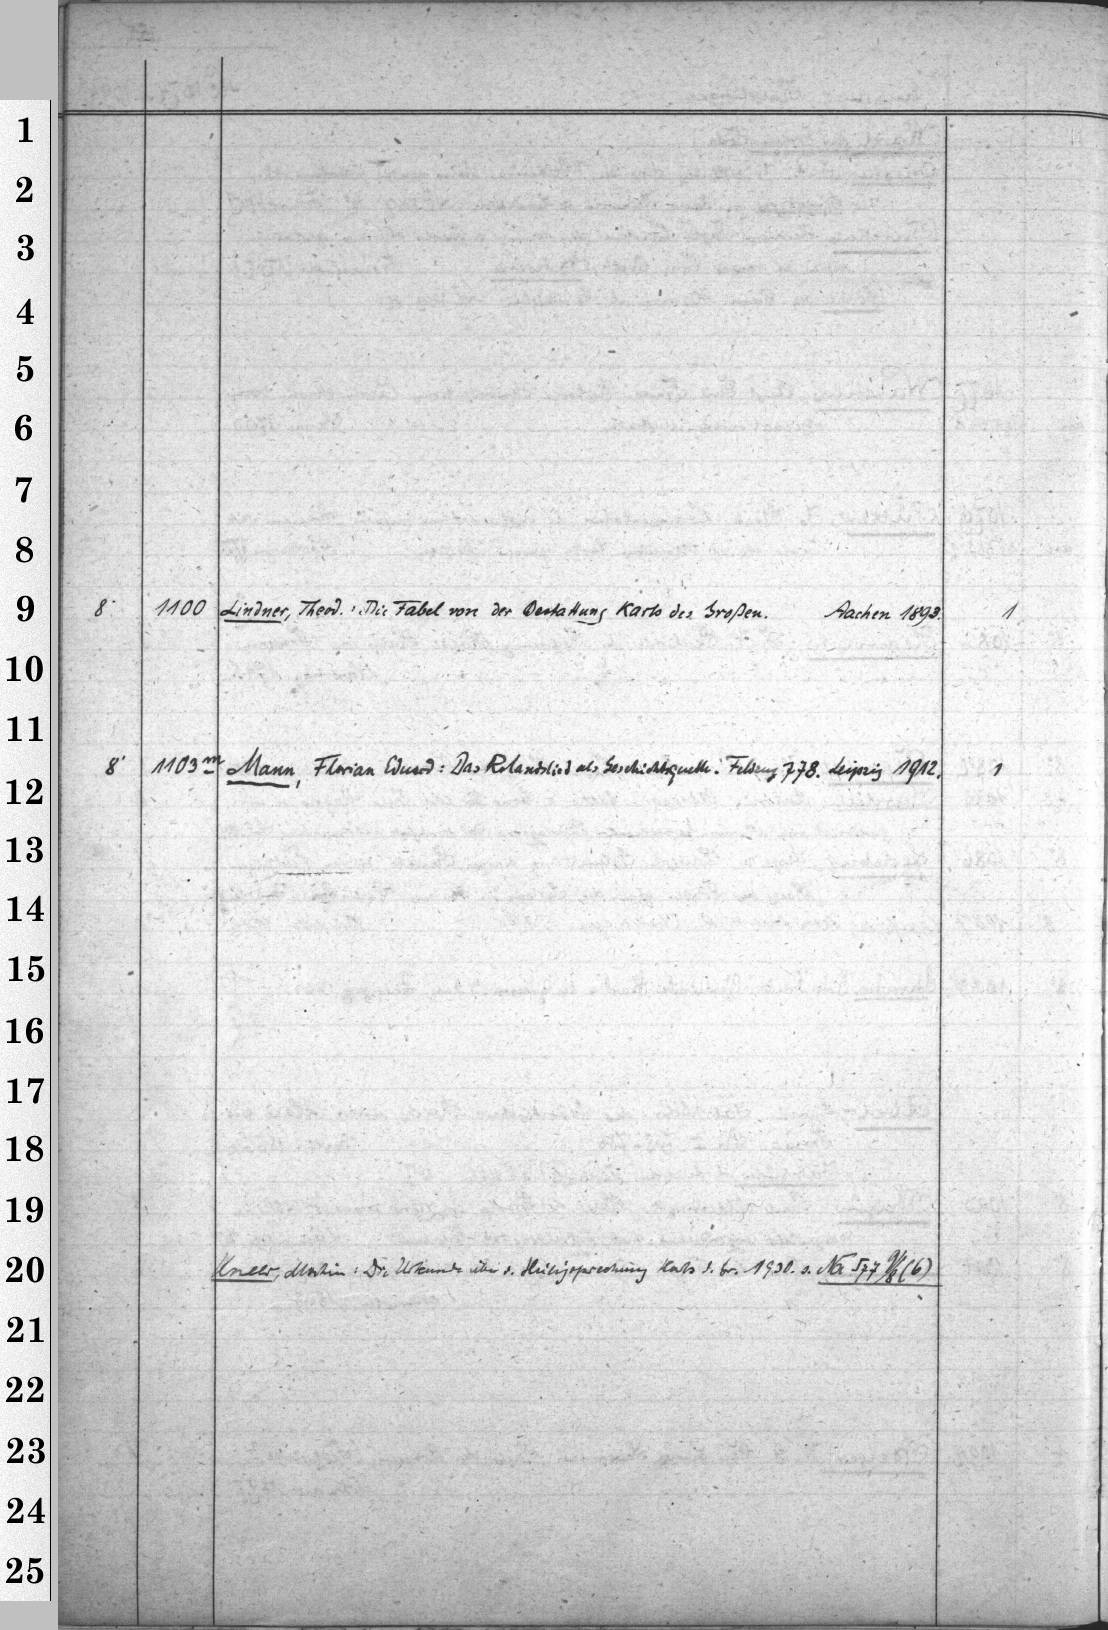 1
2
3
4
5
6
7
8
9 8° 1100 Lindner, Theod.: Die Fabel von der Bestattung Karls des Großen. Aachen 1893. 1
10
11
12 8° 1103 m Mann, Florian Eduard: Das Rolandslied als Geschichtsquelle. Feldzug 778. Leipzig 1912. 1
13
14
15
16
17
18
19
20 Martin: Die Urkunde über d. Heiligsprechung Karls d. Gr. 1930. s. Na 577 (6)
21
22
23
24
25